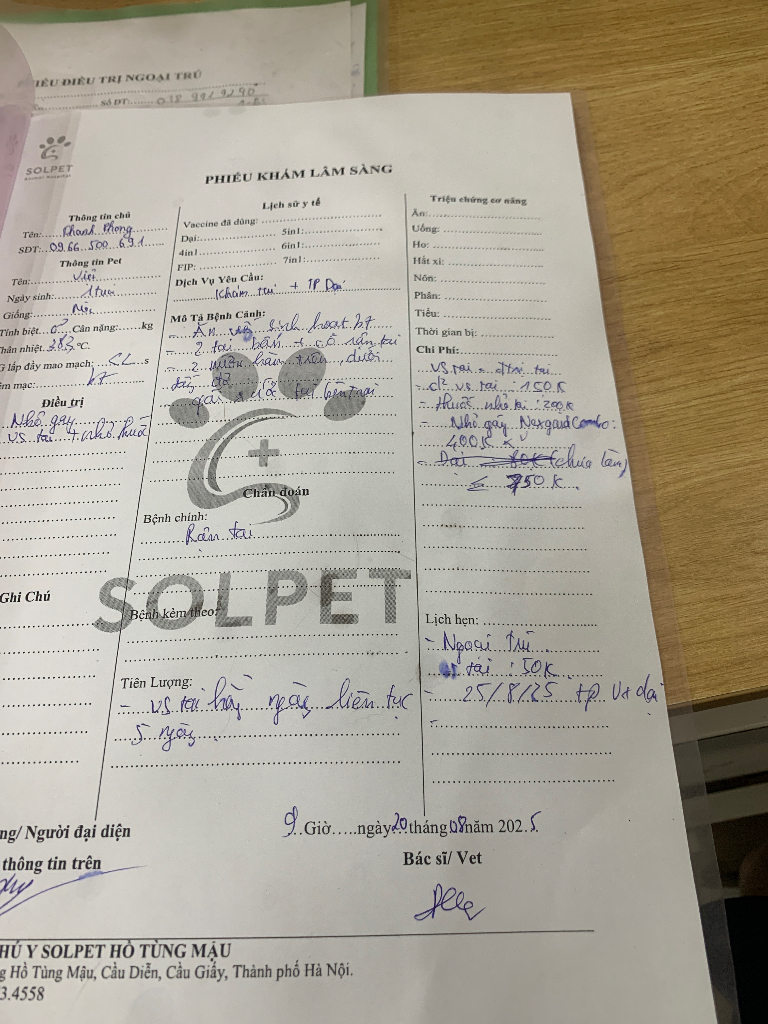 PHIẾU ĐIỀU TRỊ NGOẠI TRÚ
Số DT: 038 9919290
SOLPET
Animal Hospital
PHIẾU KHÁM LÂM SÀNG
Thông tin chủ
Tên: Khanh Phong
SĐT: 0966.500 691
Thông tin Pet
Tên: Việt
Ngày sinh: 1 tuổi
Giống: Mèo
Tính biệt ♂ Cân nặng: kg
Thân nhiệt 38,3 °C
lấp đầy mao mạch: <2 s
mạc: bt
Điều trị
Nhỏ gáy
vs tai + nhỏ thuốc
Ghi Chú
Lịch sử y tế
Vaccine đã dùng:
Dại: 5in1:
4in1 6in1:
FIP: 7in1:
Dịch Vụ Yêu Cầu:
Khám tai + TP Dại
Mô Tả Bệnh Cảnh:
- Ăn sinh hoạt bt
- 2 tai bẩn + có rận tai
- 2 hàm trên, dưới
đỏ
gãi tai bên trái
Chẩn đoán
Bệnh chính:
Rận tai
SOLPET
Bệnh kèm theo:
Tiên Lượng:
- vs tai hàng ngày liên tục
5 ngày
Triệu chứng cơ năng
Ăn:
Uống:
Ho:
Hắt xì:
Nôn:
Phân:
Tiểu:
Thời gian bị:
Chi Phí:
vs tai - đtrị tai
- d² vs tai : 150K
- thuốc nhỏ tai : 200K
- Nhỏ gáy Nexgard Combo:
400K
- Dại 80K (chưa làm)
Σ 750K
Lịch hẹn:
- Ngoại Trú
vs tai : 50K
- 25/8/25 tp Vx dại
-
9 Giờ.....ngày 20 tháng 08 năm 2025
ng/ Người đại diện
thông tin trên
Bác sĩ/ Vet
HÚ Y SOLPET HỒ TÙNG MẬU
g Hồ Tùng Mậu, Cầu Diễn, Cầu Giấy, Thành phố Hà Nội.
3.4558